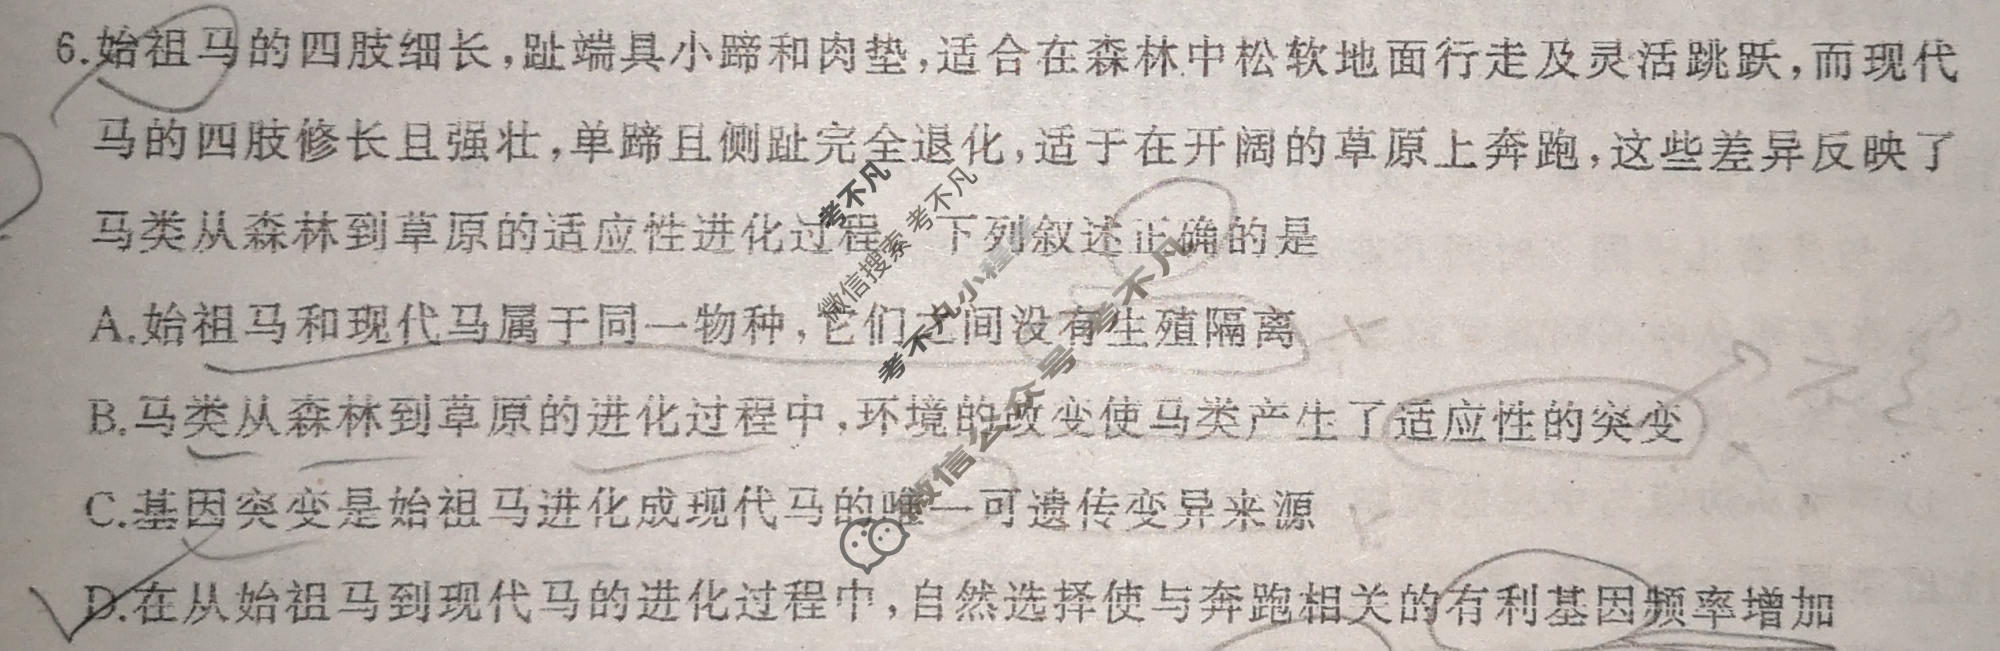 6.始祖马的四肢细长,趾端具小蹄和肉垫,适合在森林中松软地面行走及灵活跳跃,而现代
马的四肢修长且强壮,单蹄且侧趾完全退化,适于在开阔的草原上奔跑,这些差异反映了
马类从森林到草原的适应性进化过程。下列叙述正确的是
A.始祖马和现代马属于同一物种,它们之间没有生殖隔离
B.马类从森林到草原的进化过程中,环境的改变使马类产生了适应性的突变
C.基因突变是始祖马进化成现代马的唯一可遗传变异来源
D.在从始祖马到现代马的进化过程中,自然选择使与奔跑相关的有利基因频率增加
考不凡
微信搜索 考不凡
考不凡小程
微信公众号 考不凡